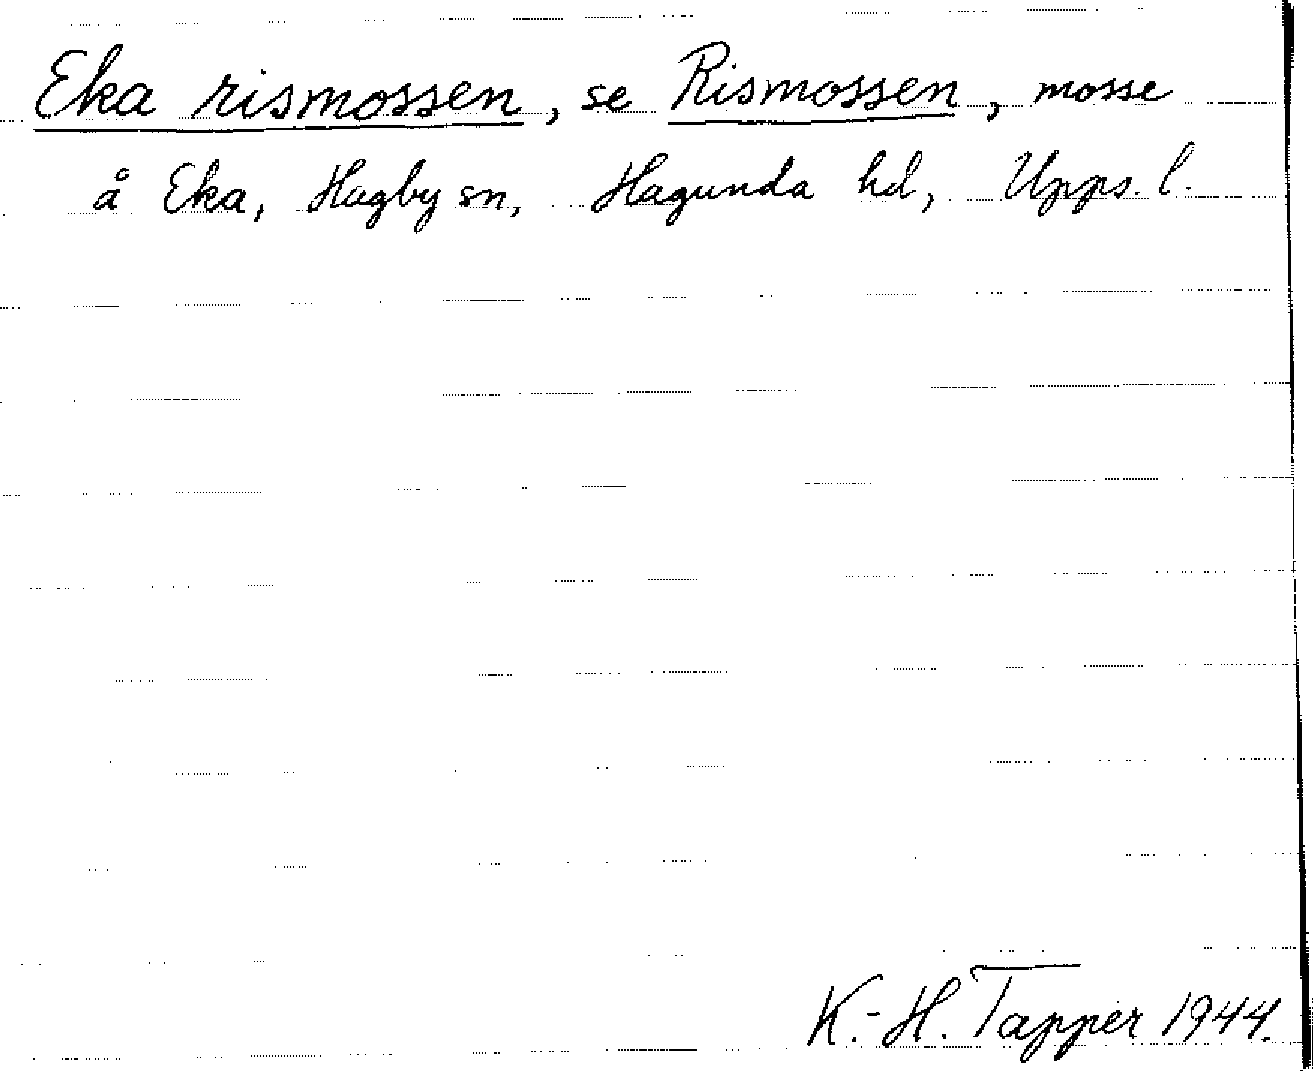 Eka rismossen, se Rismossen, mosse
å Eka, Hagby sn, Hagunda hd, Upps. l.
K.-H. Tapper 1944.